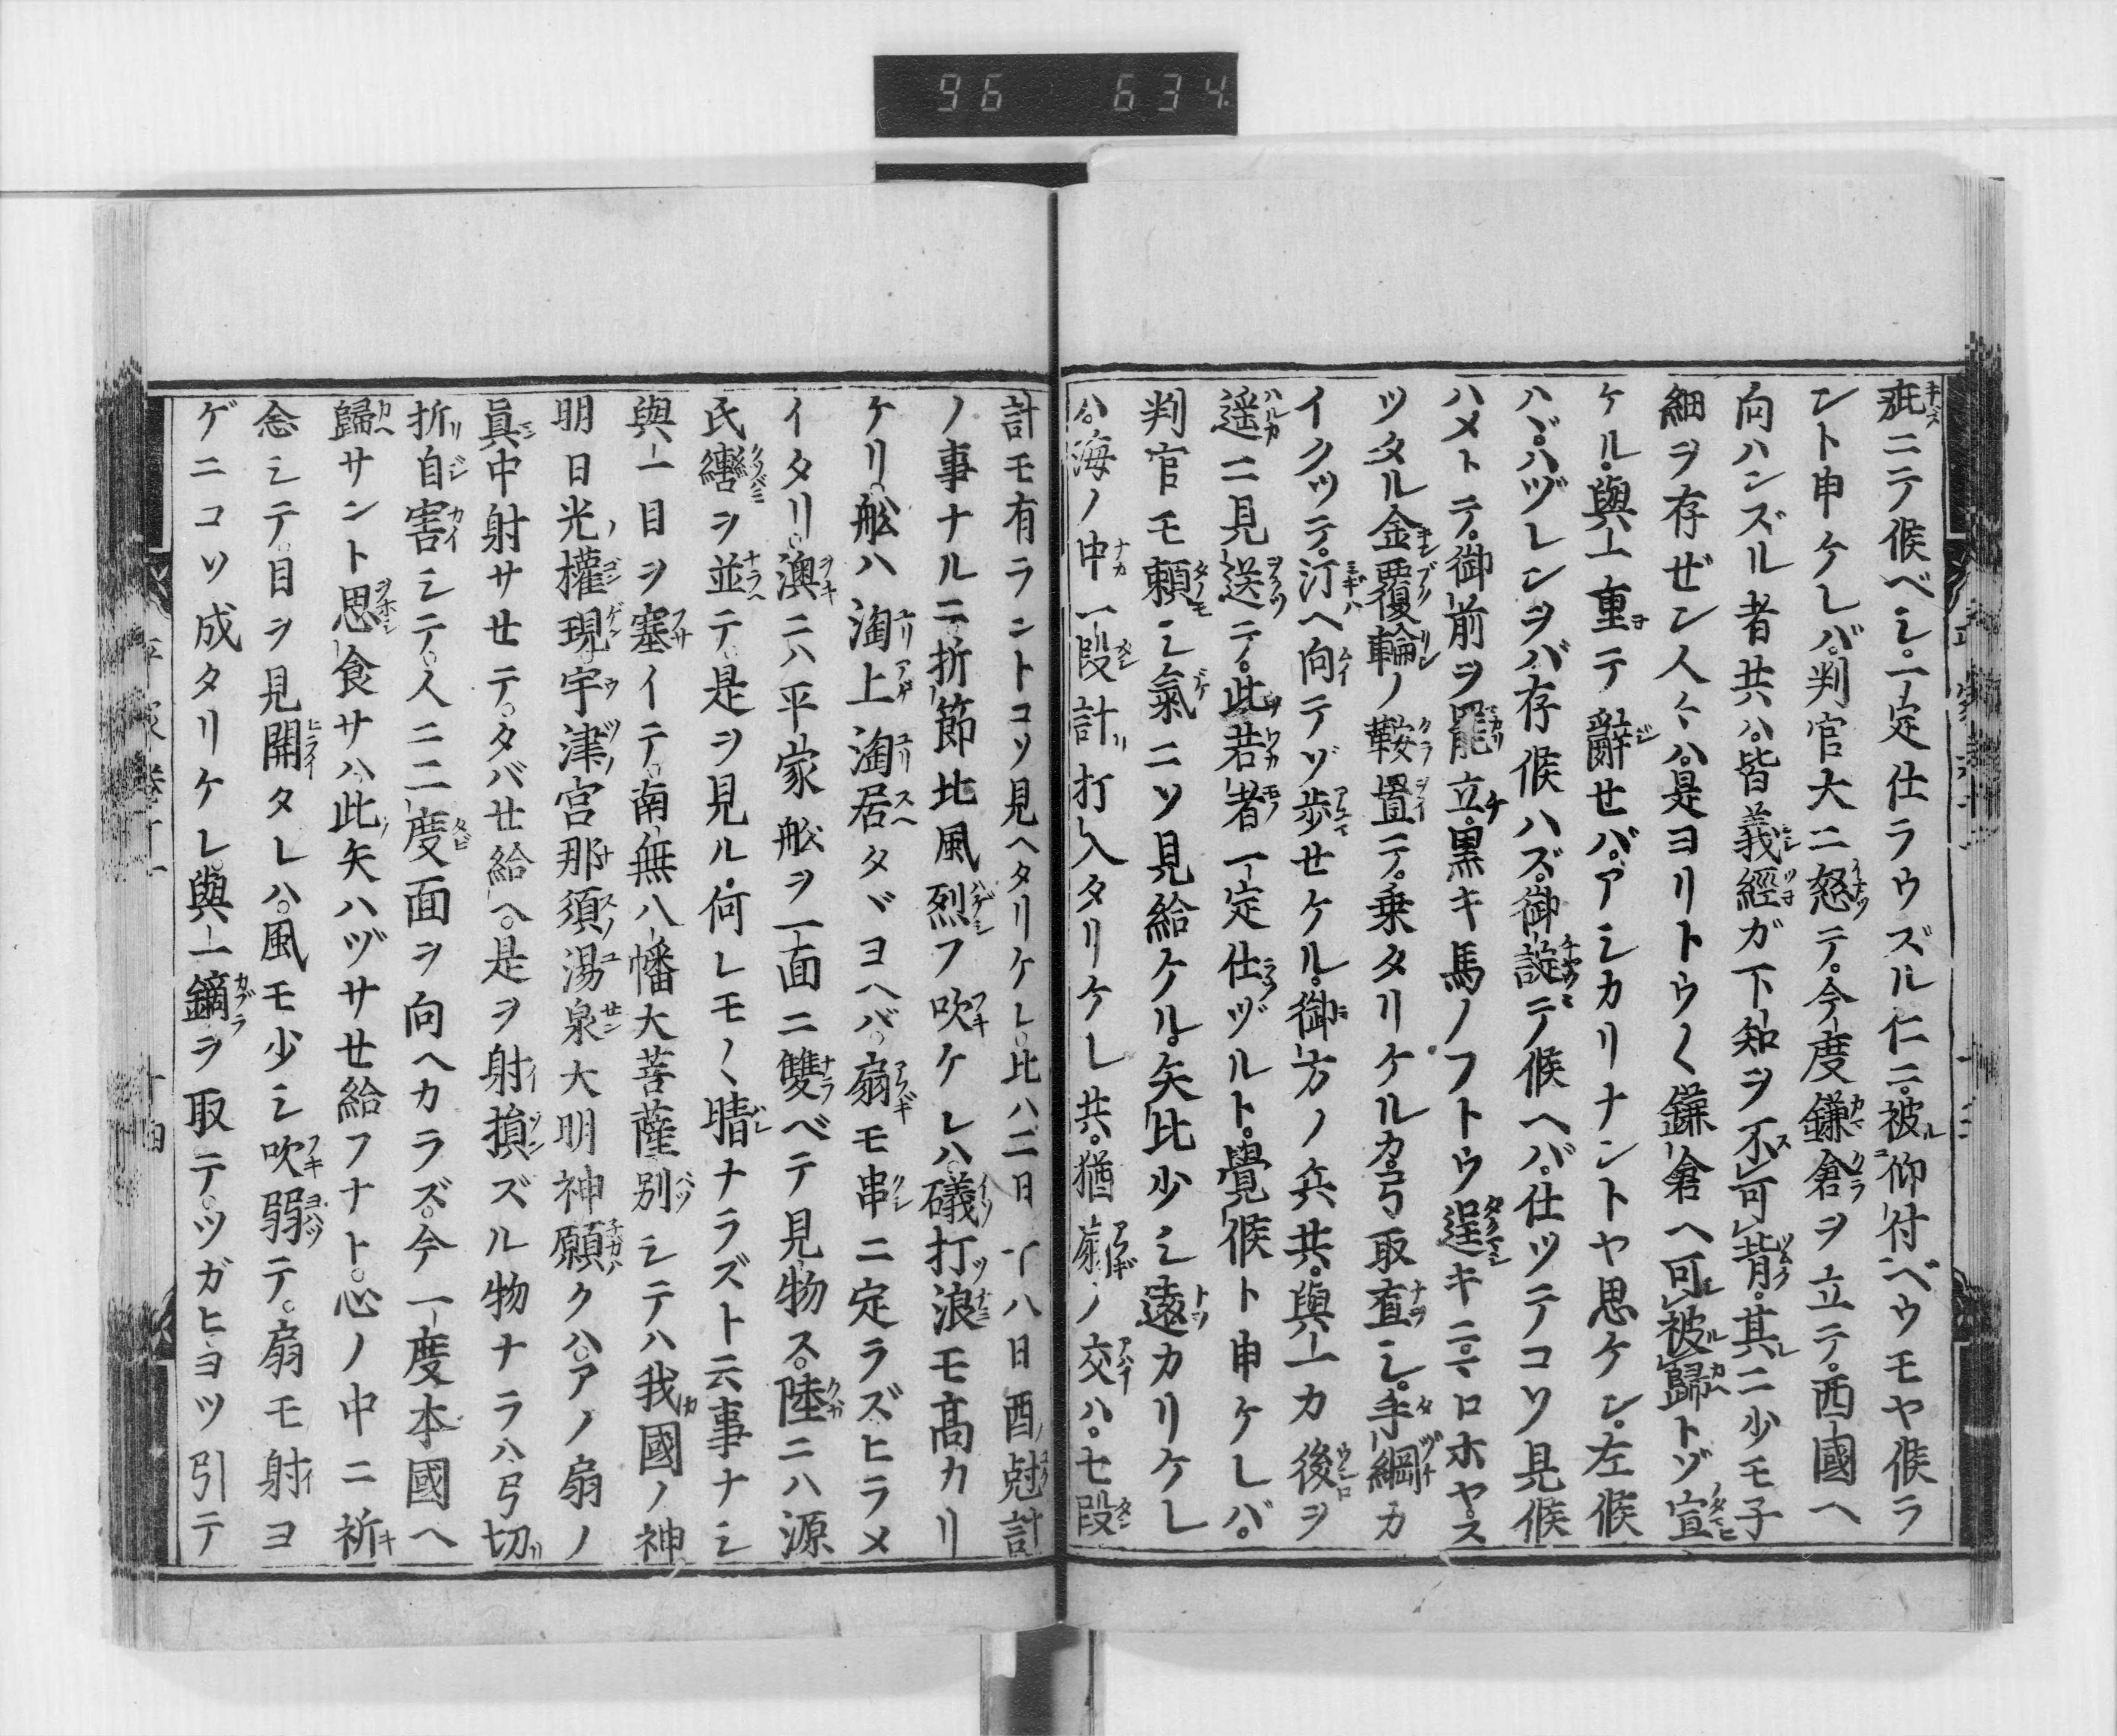 96 634
疵ニテ候ベシ。一定仕ラウズル仁ニ。被仰付ベウモヤ候ラ
ント申ケレバ。判官大ニ怒テ。今度鎌倉ヲ立テ。西國ヘ
向ハンズル者共ハ。皆義經ガ下知ヲ不可背。其ニ少モ子
細ヲ存ゼン人々ハ。是ヨリトウ〱鎌倉ヘ可被歸トゾ宣
ケル。與一重テ辭セバ。アシカリナントヤ思ケン。左候
ハヾ。ハヅレンヲバ存候ハズ。御諚テ候ヘバ。仕ツテコソ見候
ハメトテ。御前ヲ罷立。黒キ馬ノフトウ逞キニ。ロホヤス
ツタル金覆輪ノ鞍置テ。乗タリケルカ。弓取直シ。手綱カ
イクツテ。汀ヘ向テゾ歩セケル。御方ノ兵共。與一カ後ヲ
遥ニ見送テ。此若者一定仕ヅルト。覺候ト申ケレバ。
判官モ頼シ氣ニソ見給ケル。矢比少シ遠カリケレ
ハ。海ノ中一段計打入タリケレ共。猶扇ノ交ハ。七段
計モ有ラントコソ見ヘタリケレ。比ハ二日十八日酉尅計
ノ事ナルニ。折節北風烈フ吹ケレハ。礒打浪モ高カリ
ケリ。舩ハ淘上淘居タヾヨヘバ。扇モ串ニ定ラズヒラメ
イタリ。澳ニハ平家舩ヲ一面ニ雙ベテ見物ス。陸ニハ源
氏轡ヲ並テ。是ヲ見ル。何レモ〱晴ナラズト云事ナシ
與一目ヲ塞イテ。南無八幡大菩薩別シテハ我國ノ神
明日光權現。宇津宮那須湯泉大明神願クハ。アノ扇ノ
眞中射サセテ。タバセ給ヘ。是ヲ射損ズル物ナラハ。弓切
折自害シテ。人ニ二度面ヲ向ヘカラズ。今一度本國ヘ
歸サント思食サハ。此矢ハヅサセ給フナト。心ノ中ニ祈
念シテ。目ヲ見開タレハ。風モ少シ吹弱テ。扇モ射ヨ
ゲニコソ成タリケレ。與一鏑ヲ取テ。ツガヒヨツ引テ